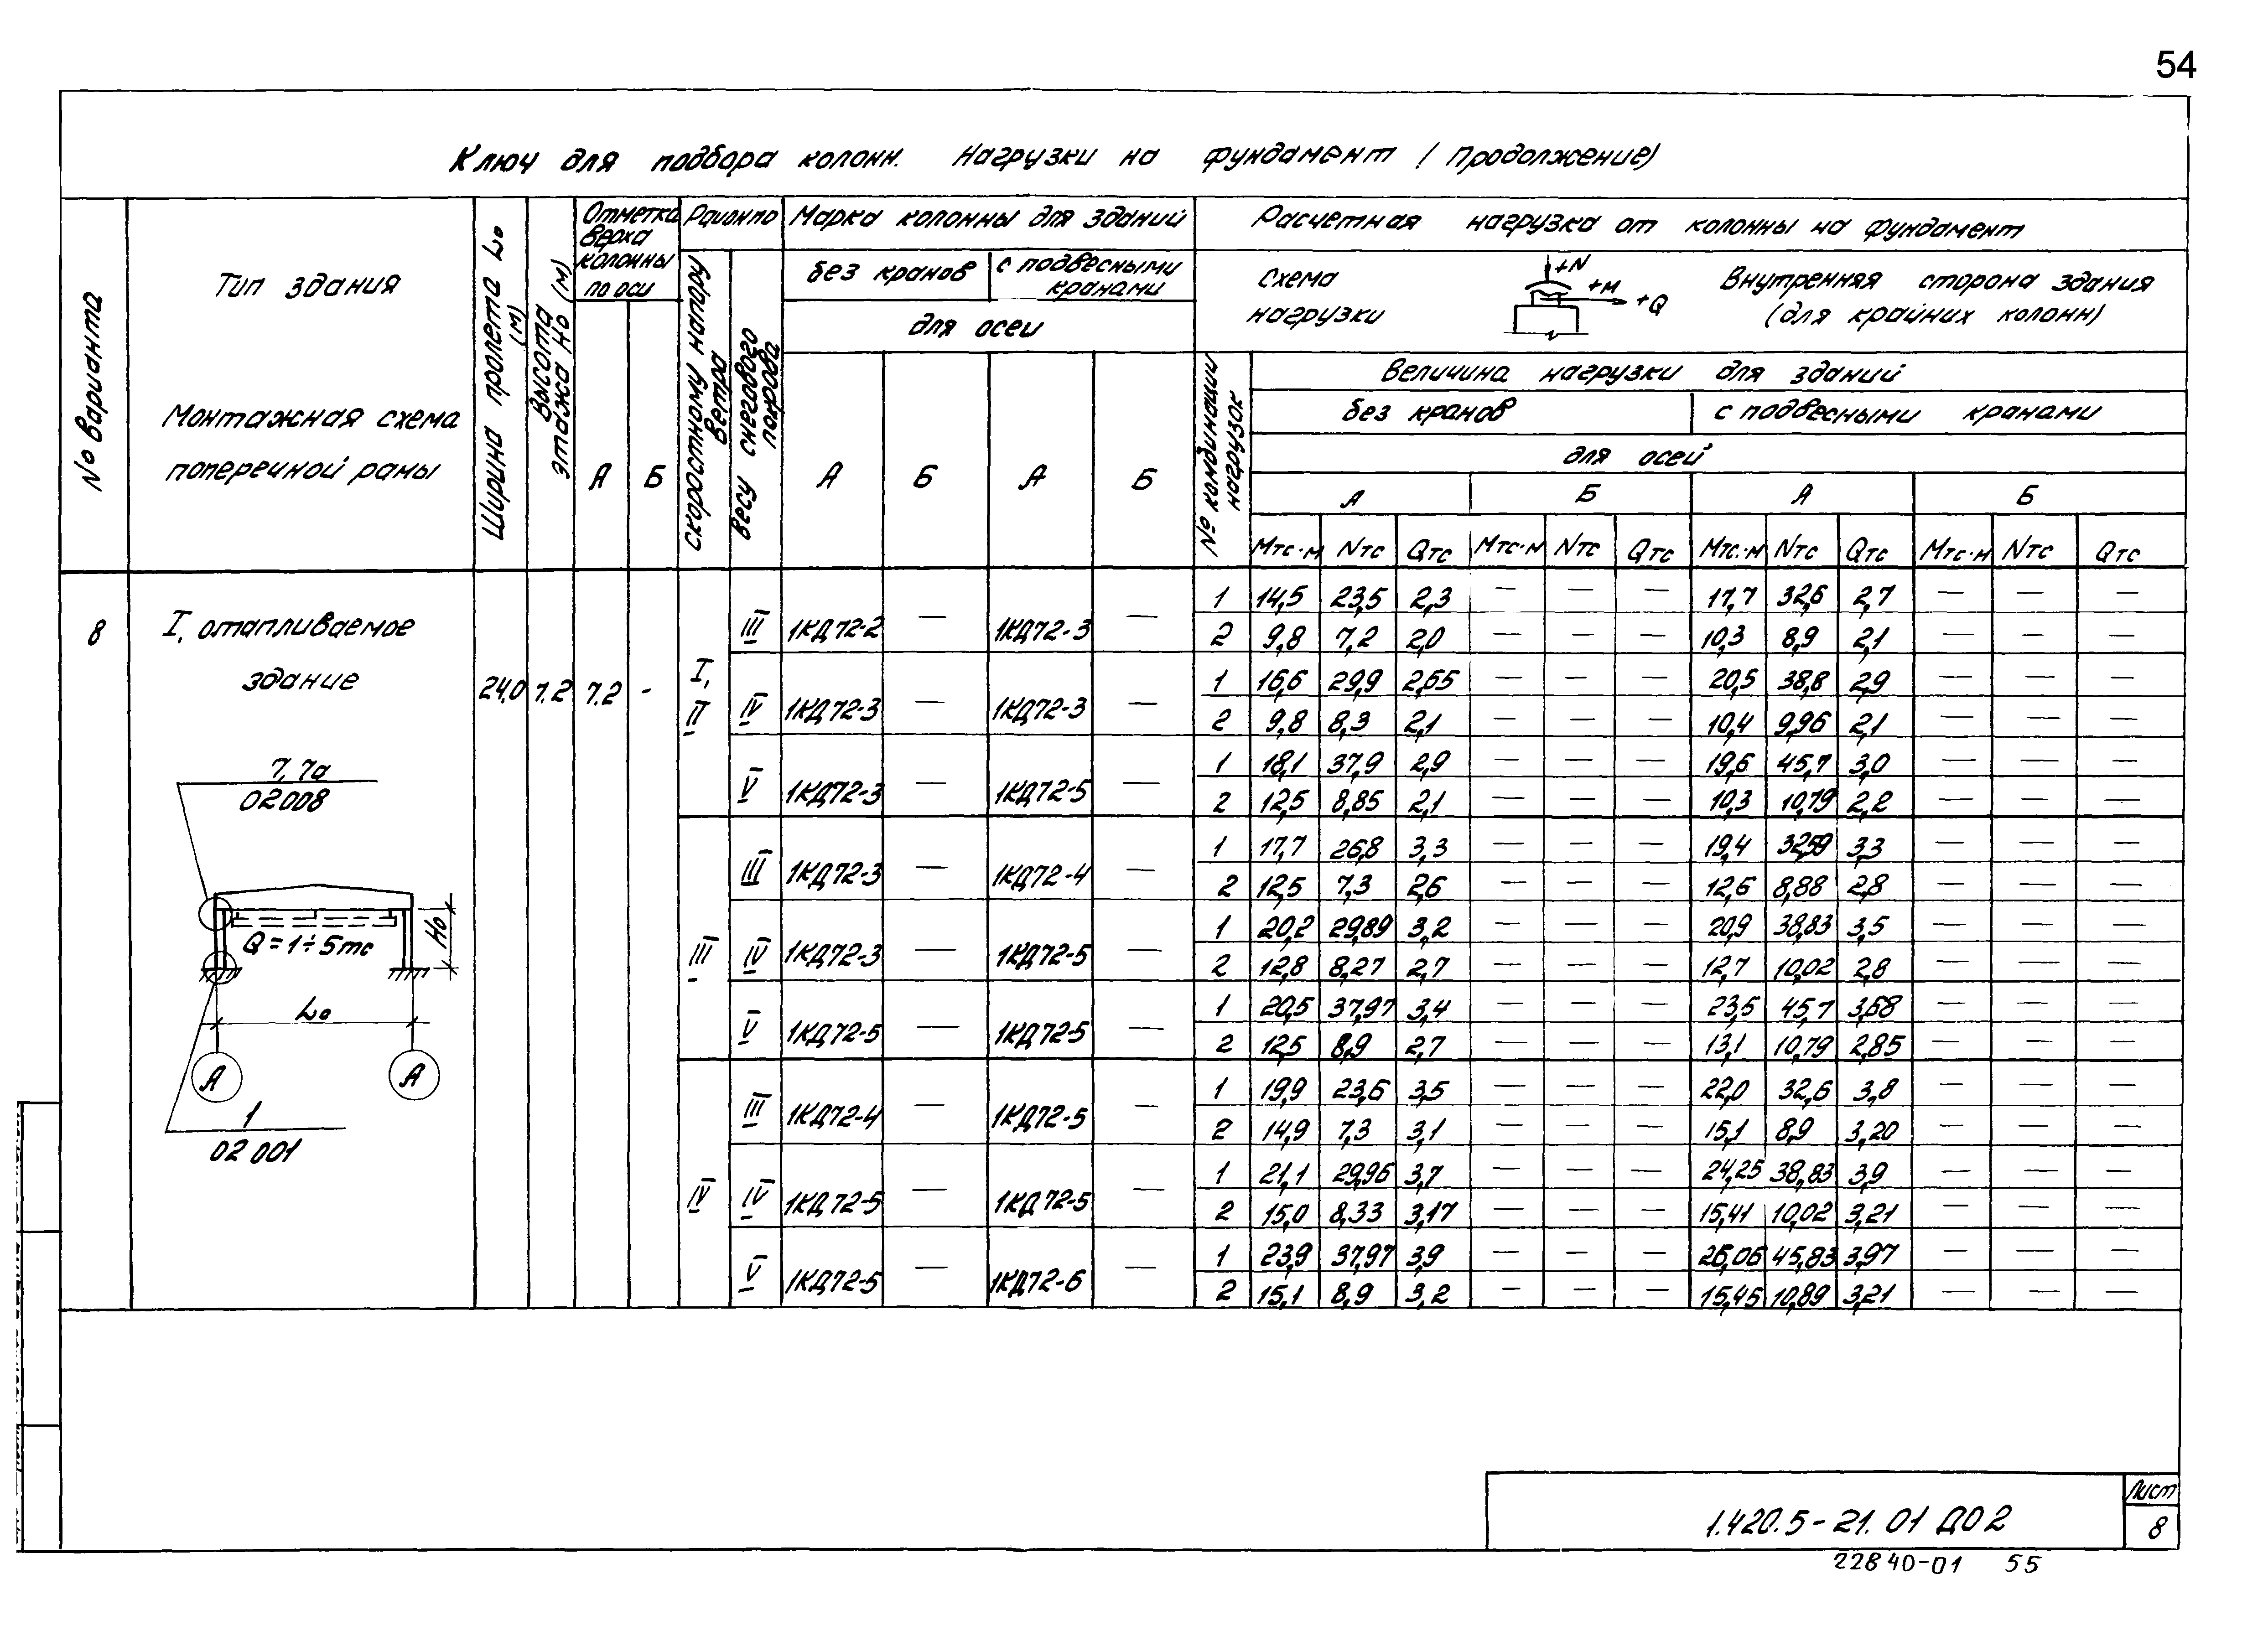 54
Ключ для подбора колонн. Нагрузки на фундамент (Продолжение)
№ варианта
Тип здания
Монтажная схема
поперечной рамы
Ширина пролета Lо (м)
Высота этажа Hо (м)
Отметка верха колонны по оси
А Б
Район по
Скоростному напору ветра
Весу снегового покрова
Марка колонны для зданий
без кранов с подвесными кранами
для осей
А Б А Б
Расчетная нагрузка от колонны на фундамент
Схема нагрузки
+N +M +Q
Внутренняя сторона здания
(для крайних колонн)
№ комбинации нагрузок
Величина нагрузки для зданий
без кранов с подвесными кранами
для осей
А Б А Б
Мтс·м Nтс Qтс Мтс·м Nтс Qтс Мтс·м Nтс Qтс Мтс·м Nтс Qтс
8 I, отапливаемое здание 24,0 7.2 7.2 -
7, 7а
02008
Q = 1÷5тс
Hо
Lо
А А
1
02 001
I, II III 1КД72-2 — 1КД72-3 — 1 14,5 23,5 2,3 — — — 17,7 32,6 2,7 — — —
2 9,8 7,2 2,0 — — — 10,3 8,9 2,1 — — —
IV 1КД72-3 — 1КД72-3 — 1 16,6 29,9 2,65 — — — 20,5 38,8 2,9 — — —
2 9,8 8,3 2,1 — — — 10,4 9,96 2,1 — — —
V 1КД72-3 — 1КД72-5 — 1 18,1 37,9 2,9 — — — 19,6 45,7 3,0 — — —
2 12,5 8,85 2,1 — — — 10,3 10,79 2,2 — — —
III III 1КД72-3 — 1КД72-4 — 1 17,7 26,8 3,3 — — — 19,4 32,59 3,3 — — —
2 12,5 7,3 2,6 — — — 12,6 8,88 2,8 — — —
IV 1КД72-3 — 1КД72-5 — 1 20,2 29,89 3,2 — — — 20,9 38,83 3,5 — — —
2 12,8 8,27 2,7 — — — 12,7 10,02 2,8 — — —
V 1КД72-5 — 1КД72-5 — 1 20,5 37,97 3,4 — — — 23,5 45,7 3,68 — — —
2 12,5 8,9 2,7 — — — 13,1 10,79 2,85 — — —
IV III 1КД72-4 — 1КД72-5 — 1 19,9 23,6 3,5 — — — 22,0 32,6 3,8 — — —
2 14,9 7,3 3,1 — — — 15,1 8,9 3,20 — — —
IV 1КД72-5 — 1КД72-5 — 1 21,1 29,96 3,7 — — — 24,25 38,83 3,9 — — —
2 15,0 8,33 3,17 — — — 15,41 10,02 3,21 — — —
V 1КД72-5 — 1КД72-6 — 1 23,9 37,97 3,9 — — — 26,06 45,83 3,97 — — —
2 15,1 8,9 3,2 — — — 15,45 10,89 3,21 — — —
1.420.5-21.01 Д02
Лист
8
22840-01 55